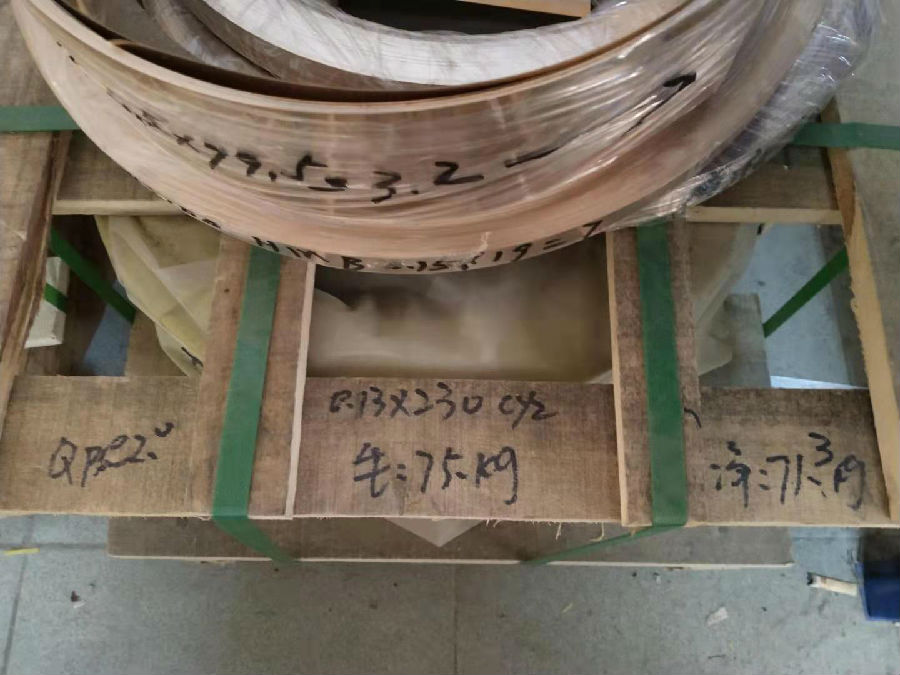 X79.5=3.2
HMB 0.15X19=7
0.13X230 CY2
QBe2.0
毛:75.kg
净:71.3kg